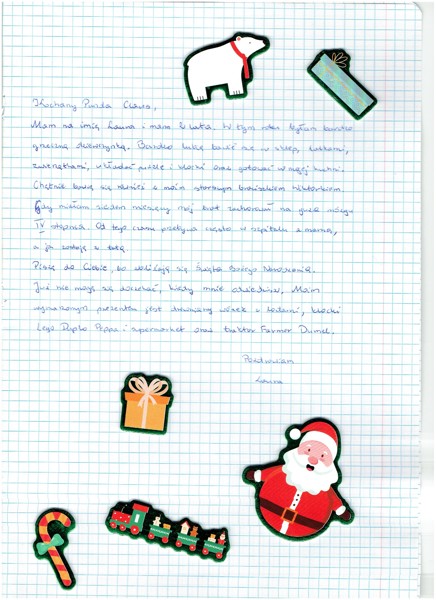 Kochany Panda Claus,
Mam na imię Laura i mam 2 lata. W tym roku byłam bardzo
grzeczną dziewczynką. Bardzo lubię bawić się w sklep, lalkami,
zwierzątkami, układać puzzle i klocki oraz gotować w mojej kuchni.
Chętnie bawię się również z moim starszym braciszkiem Wiktorkiem.
Gdy miałam siedem miesięcy mój brat zachorował na guza mózgu
IV stopnia. Od tego czasu przebywa często w szpitalu z mamą,
a ja zostaję z tatą.
Piszę do Ciebie, bo zbliżają się Święta Bożego Narodzenia.
Już nie mogę się doczekać, kiedy mnie odwiedzisz. Moim
wymarzonym prezentem jest drewniany wózek z lodami, klocki
Lego Duplo Peppa i supermarket oraz traktor Farmer Dumel.
Pozdrawiam
Laura